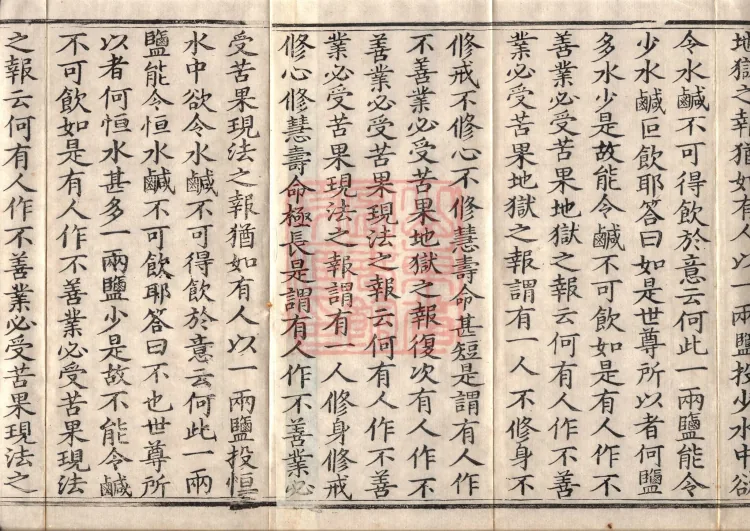 地獄之報猶如有人以一兩鹽投少水中欲
令水鹹不可得飲於意云何此一兩鹽能令
少水鹹叵飲耶答曰如是世尊所以者何鹽
多水少是故能令鹹不可飲如是有人作不
善業必受苦果地獄之報云何有人作不善
業必受苦果地獄之報謂有一人不修身不
修戒不修心不修慧壽命甚短是謂有人作
不善業必受苦果地獄之報復次有人作不
善業必受苦果現法之報云何有人作不善
業必受苦果現法之報謂有一人修身修戒
修心修慧壽命極長是謂有人作不善業必
受苦果現法之報猶如有人以一兩鹽投恒
水中欲令水鹹不可得飲於意云何此一兩
鹽能令恒水鹹不可飲耶答曰不也世尊所
以者何恒水甚多一兩鹽少是故不能令鹹
不可飲如是有人作不善業必受苦果現法
之報云何有人作不善業必受苦果現法之